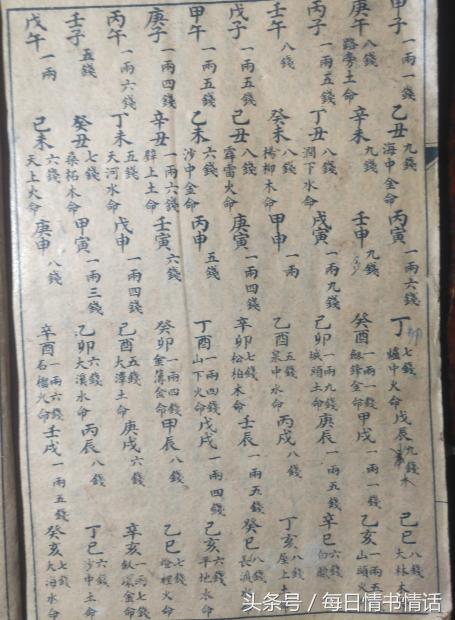 甲子 一兩一錢 乙丑 九錢 海中金命 丙寅 一兩六錢 丁卯 七錢 爐中火命 戊辰 九錢 木 己巳 八錢 大林木
庚午 八錢 路旁土命 辛未 九錢 壬申 九錢 癸酉 一兩一錢 劍鋒金命 甲戌 一兩一錢 乙亥 一兩五 山頭火
丙子 一兩五錢 丁丑 八錢 澗下水命 戊寅 一兩九錢 己卯 一兩九錢 城頭土命 庚辰 一兩五錢 辛巳 六錢 白
壬午 八錢 癸未 八錢 楊柳木命 甲申 一兩 乙酉 五錢 泉中水命 丙戌 八錢 丁亥 八錢 屋上
戊子 一兩五錢 己丑 八錢 霹雷火命 庚寅 一兩四錢 辛卯 七錢 松柏木命 壬辰 一兩五錢 癸巳 八錢 長流
甲午 一兩五錢 乙未 六錢 沙中金命 丙申 五錢 丁酉 一兩四錢 山下火命 戊戌 一兩四錢 己亥 六錢 平地水命
庚子 一兩四錢 辛丑 一兩六錢 上土命 壬寅 六錢 癸卯 一兩四錢 金薄金命 甲辰 八錢 乙巳 七錢 燈裡火命
丙午 一兩六錢 丁未 五錢 天河水命 戊申 一兩四錢 己酉 五錢 大澤土命 庚戌 六錢 辛亥 一兩七錢 釵環金命
壬子 五錢 癸丑 七錢 桑柘木命 甲寅 一兩三錢 乙卯 六錢 大溪水命 丙辰 八錢 丁巳 六錢 沙中土命
戊午 一兩 己未 六錢 天上火命 庚申 八錢 辛酉 一兩六錢 石榴火命 壬戌 一兩五錢 癸亥 七錢 大海水命
头条号 / 每日情书情话